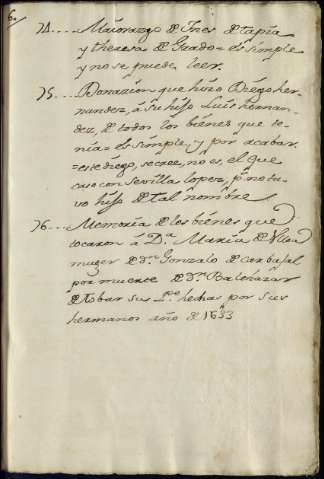 74.... Maiorazgo de Ines de tapia
y theresa de Prado = es simple
y no se puede leer.
75.... Donazion que hizo Diego her-
nandez, á su hijo Luis hernan-
dez, de todos los bienes que te-
nia = es simple, y por acabar.
= este diego, se cree, no es, el que
caso con Sevilla lopez, pr no tu-
vo hijo de tal nombre
76.... Memoria de los bienes que
tocaron á Da. Maria de
muger de dn. Gonzalo de Carbajal
por muerte de dn. Balthazar
de tobar sus Pe. hechas por sus
hermanos año de 1633